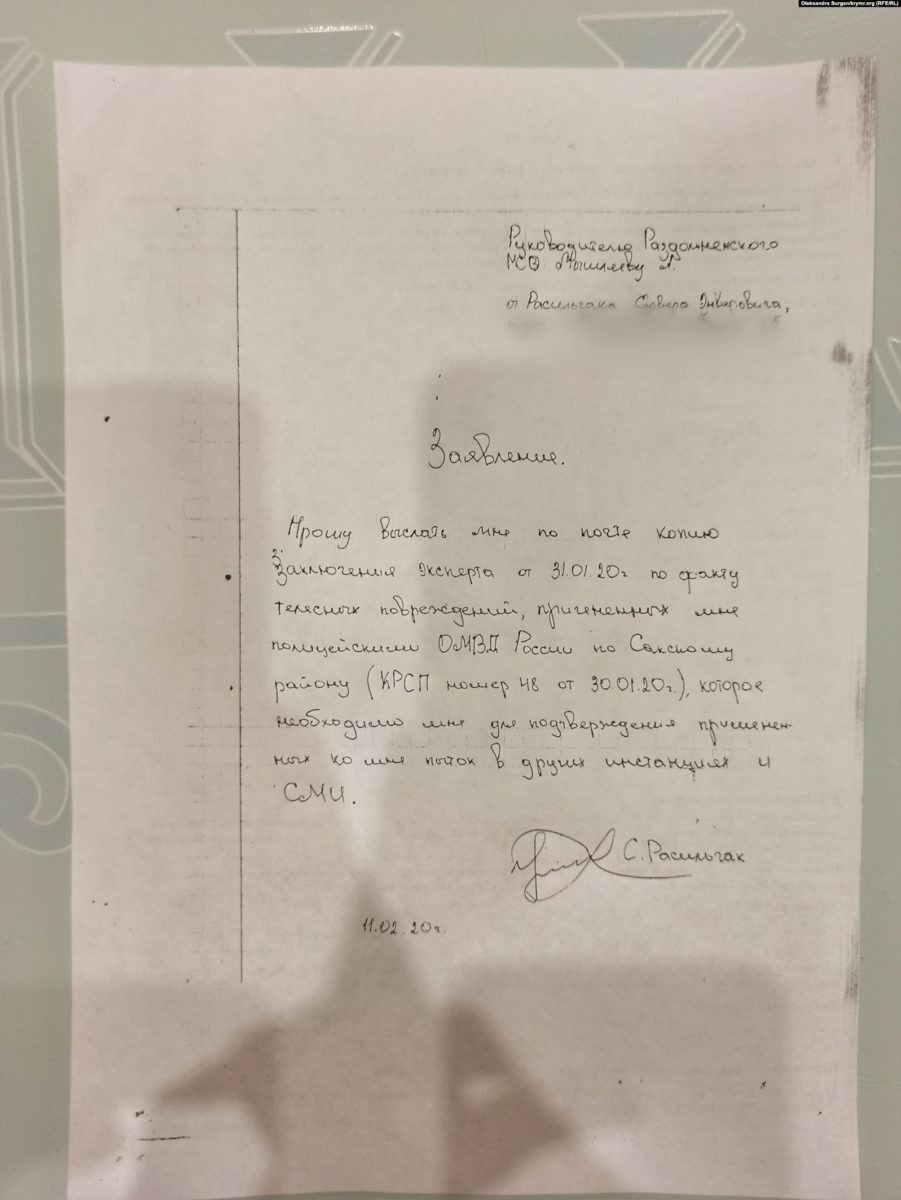 Oleksandra Surgan/krymr.org (RFE/RL)
Руководителю Раздольненского
МСО А.
от Расильгака Сервера Энверовича,
Заявление.
Прошу выслать мне по почте копию
Заключения эксперта от 31.01.20г по факту
телесных повреждений, причененных мне
полицейскими ОМВД России по Сакскому
району (КРСП номер 48 от 30.01.20г.), которое
необходимо мне для подтверждения применен-
ных ко мне пыток в других инстанциях и
СМИ.
С. Расильгак
11.02.20г.